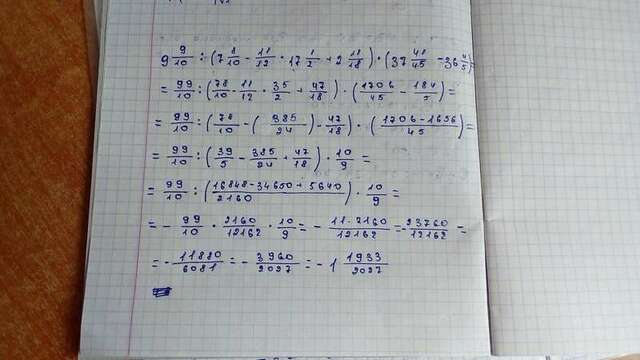 9 9/10 : (7 8/10 - 11/12 · 17 1/2 + 2 11/18) · (37 41/45 - 36 4/5) =
= 99/10 : (78/10 - 11/12 · 35/2 + 47/18) · (1706/45 - 184/5) =
= 99/10 : (78/10 - (385/24) - 47/18) · (1706-1656/45) =
= 99/10 : (39/5 - 385/24 + 47/18) · 10/9 =
= 99/10 : (16848-34650+5640/2160) · 10/9 =
= - 99/10 · 2160/12162 · 10/9 = - 11·2160/12162 = - 23760/12162 =
= - 11880/6081 = - 3960/2027 = - 1 1933/2027